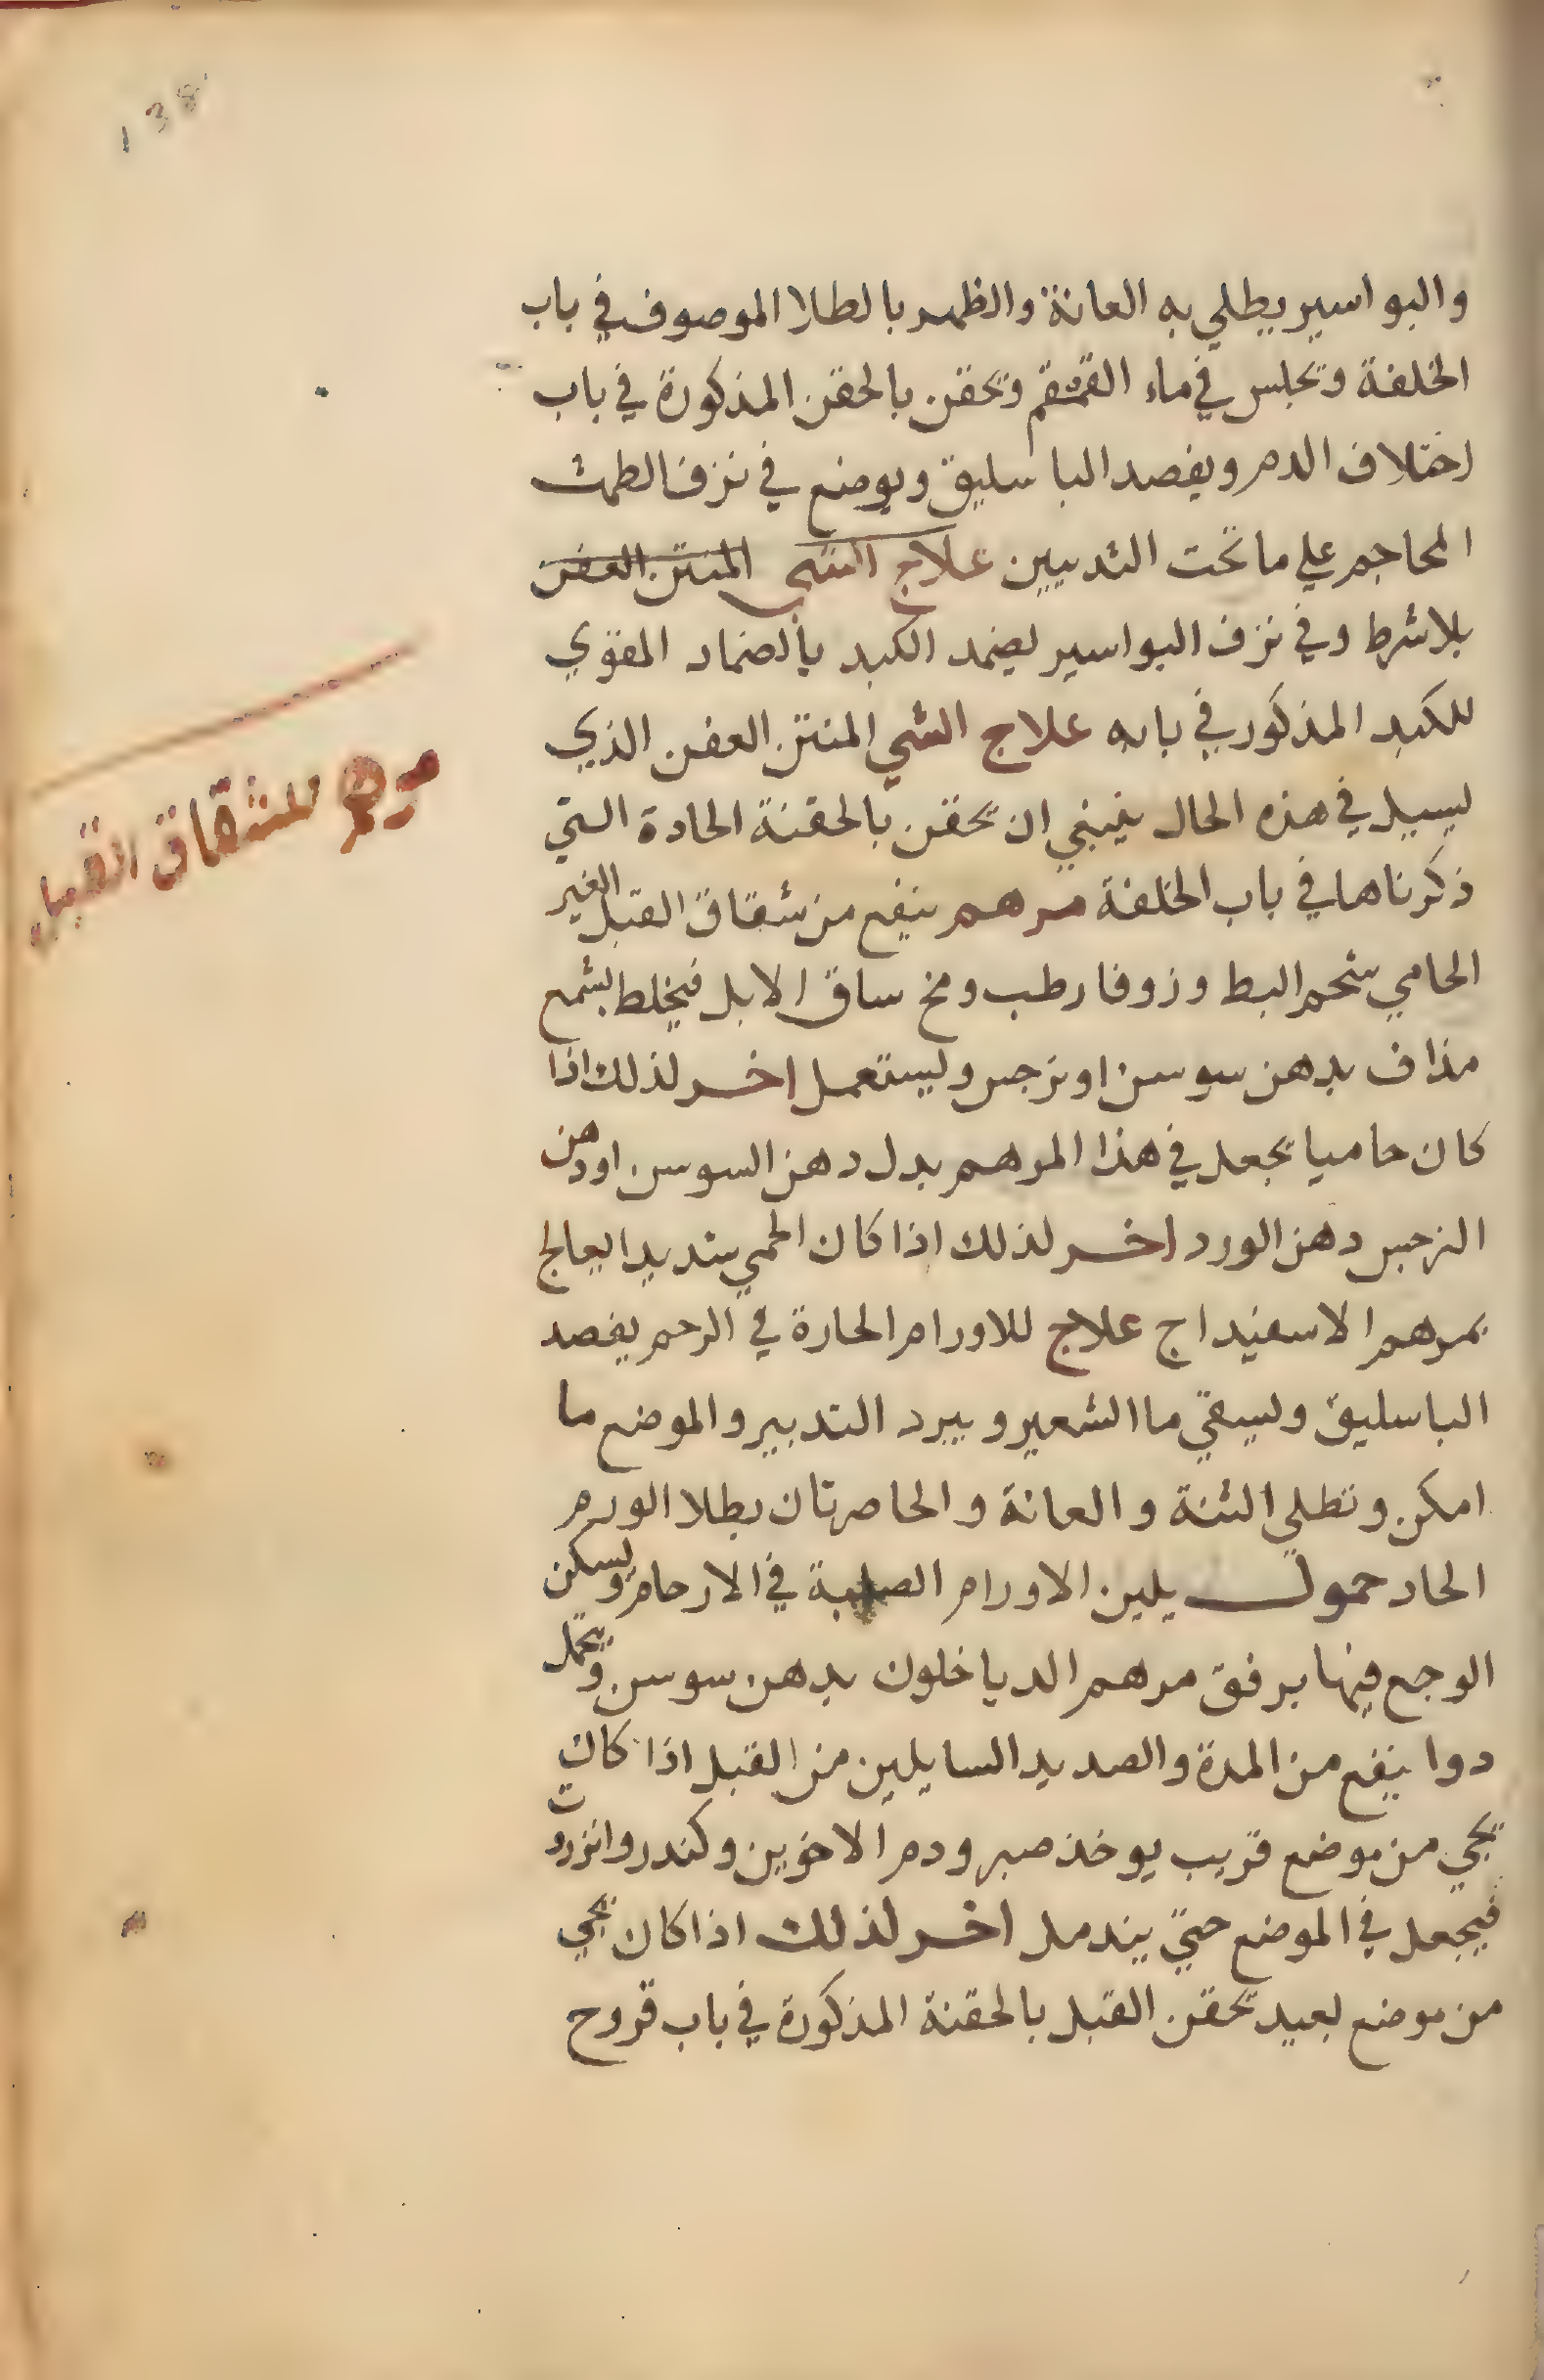 138
والبواسير يطلي به العانة والظهر بالطلا الموصوف في باب
الخلفة وتجلس في ماء القمقم وتحقن بالحقن المذكورة في باب
اختلاف الدم ويفصد الباسليق ويوضع في نزف الطمث
المحاجم علي ما تحت الثديين علاج الشي المنتن العفن
بلا شرط وفي نزف البواسير يضمد الكبد بالضماد المقوي
للكبد المذكور في بابه علاج الشي المنتن العفن الذي
يسيل في هذه الحال ينبغي ان تحقن بالحقنة الحادة التي
ذكرناها في باب الخلفة مرهم ينفع من شقاق القبل الغير
الحامي شحم البط وزوفا رطب ومخ ساق الابل فيخلط بشمع
مذاف بدهن سوسن او نرجس ويستعمل اخر لذلك اذا
كان حاميا يجعل في هذا المرهم بدل دهن السوسن او دهن
النرجس دهن الورد اخر لذلك اذا كان الحمي شديدا يعالج
بمرهم الاسفيداج علاج للاورام الحارة في الرحم يفصد
الباسليق ويسقي ما الشعير ويبرد التدبير والموضع ما
امكن وتطلي الثنة والعانة والخاصرتان بطلا الورم
الحاد حمول يلين الاورام الصلبة في الارحام ويسكن
الوجع فيها برفق مرهم الدياخلون بدهن سوسن ويحمل
دوا ينفع من المدة والصديد السايلين من القبل اذا كان
يجي من موضع قريب يوخذ صبر ودم الاخوين وكندر وانزروت
فيجعل في الموضع حتي يندمل اخر لذلك اذا كان يجي
من موضع بعيد تحقن القبل بالحقنة المذكورة في باب قروح
مرهم للشقاق القبل